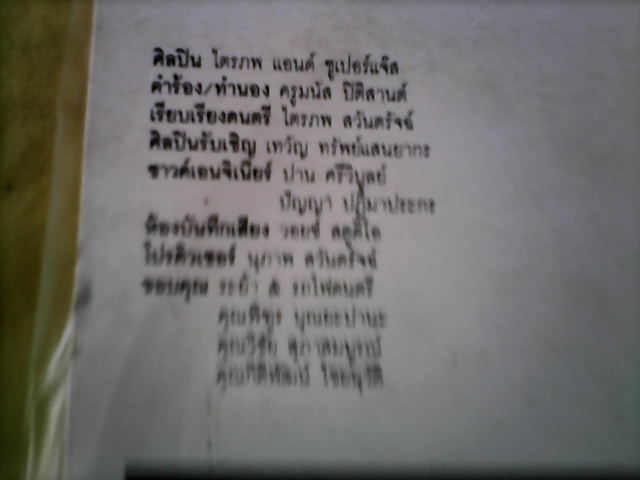 ศิลปิน ไตรภพ แอนด์ ซูเปอร์แจ๊ส
คำร้อง/ทำนอง ครูมนัส ปิติสานต์
เรียบเรียงดนตรี ไตรภพ สวันตรัจฉ์
ศิลปินรับเชิญ เทวัญ ทรัพย์แสนยากร
ซาวด์เอนจิเนียร์ ปาน ศรีวิบูลย์
ปัญญา ปฏิมาประกร
ห้องบันทึกเสียง วอยซ์ สตูดิโอ
โปรดิวเซอร์ นุภาพ สวันตรัจฉ์
ขอบคุณ ระย้า & รถไฟดนตรี
คุณพิฑูร
คุณวิชัย สุภาสมบูรณ์
คุณกิติพัฒน์